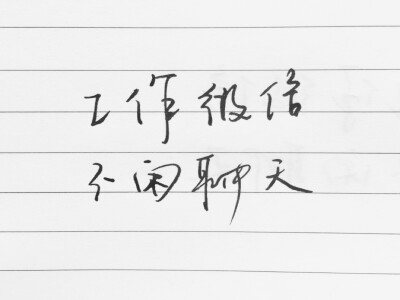 工作微信
不闲聊天